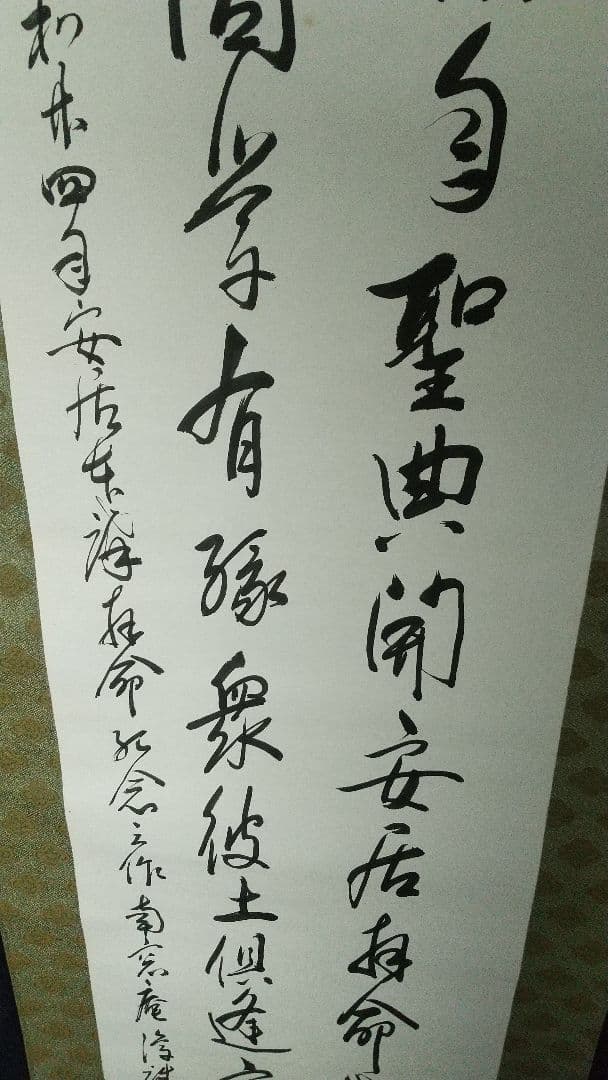 自聖典開安居拝命
問学有縁衆彼土倶逢
四月安居本講拝命記念之作 南窓庵